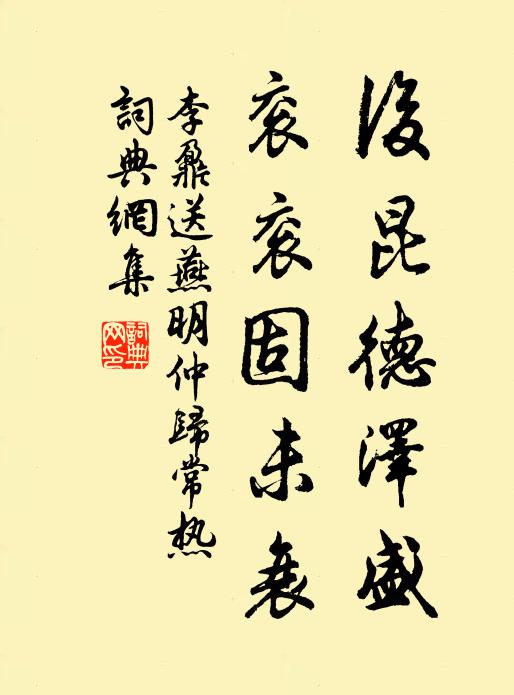 後昆德澤盛
衮衮固未衰
李鼐送燕明仲歸常熟
詞典網集
詞典网印